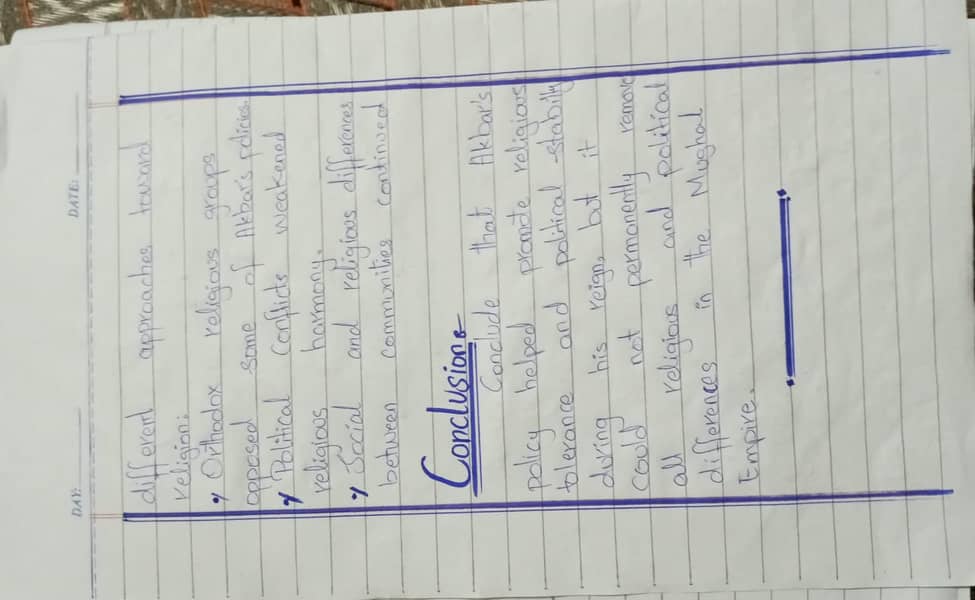 DAY: DATE:
different approaches toward
religion:
Orthodox religious groups
opposed some of Akbar's policies.
Political Conflicts weakened
religious harmony.
Social and religious differences
between communities continued
Conclusion:
Conclude that Akbar's
policy helped promote religious
tolerance and political stability
during his reign, but it
could not permanently remove
all religious and political
differences in the Mughal
Empire.